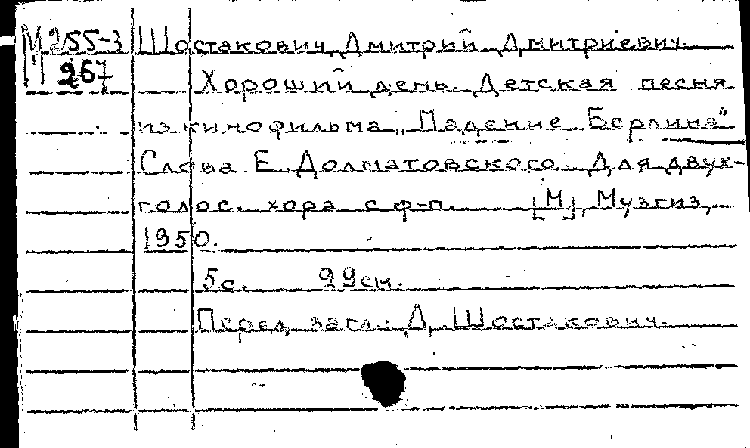 М 255-3 Шостакович, Дмитрий Дмитриевич.
М 267 Хороший день. Детская песня
из кинофильма „Падение Берлина"
Слова Е. Долматовского. Для двух-
голос. хора с ф-п. [М], Музгиз,
1950.
5с. 29см.
Перед загл.: Д. Шостакович.